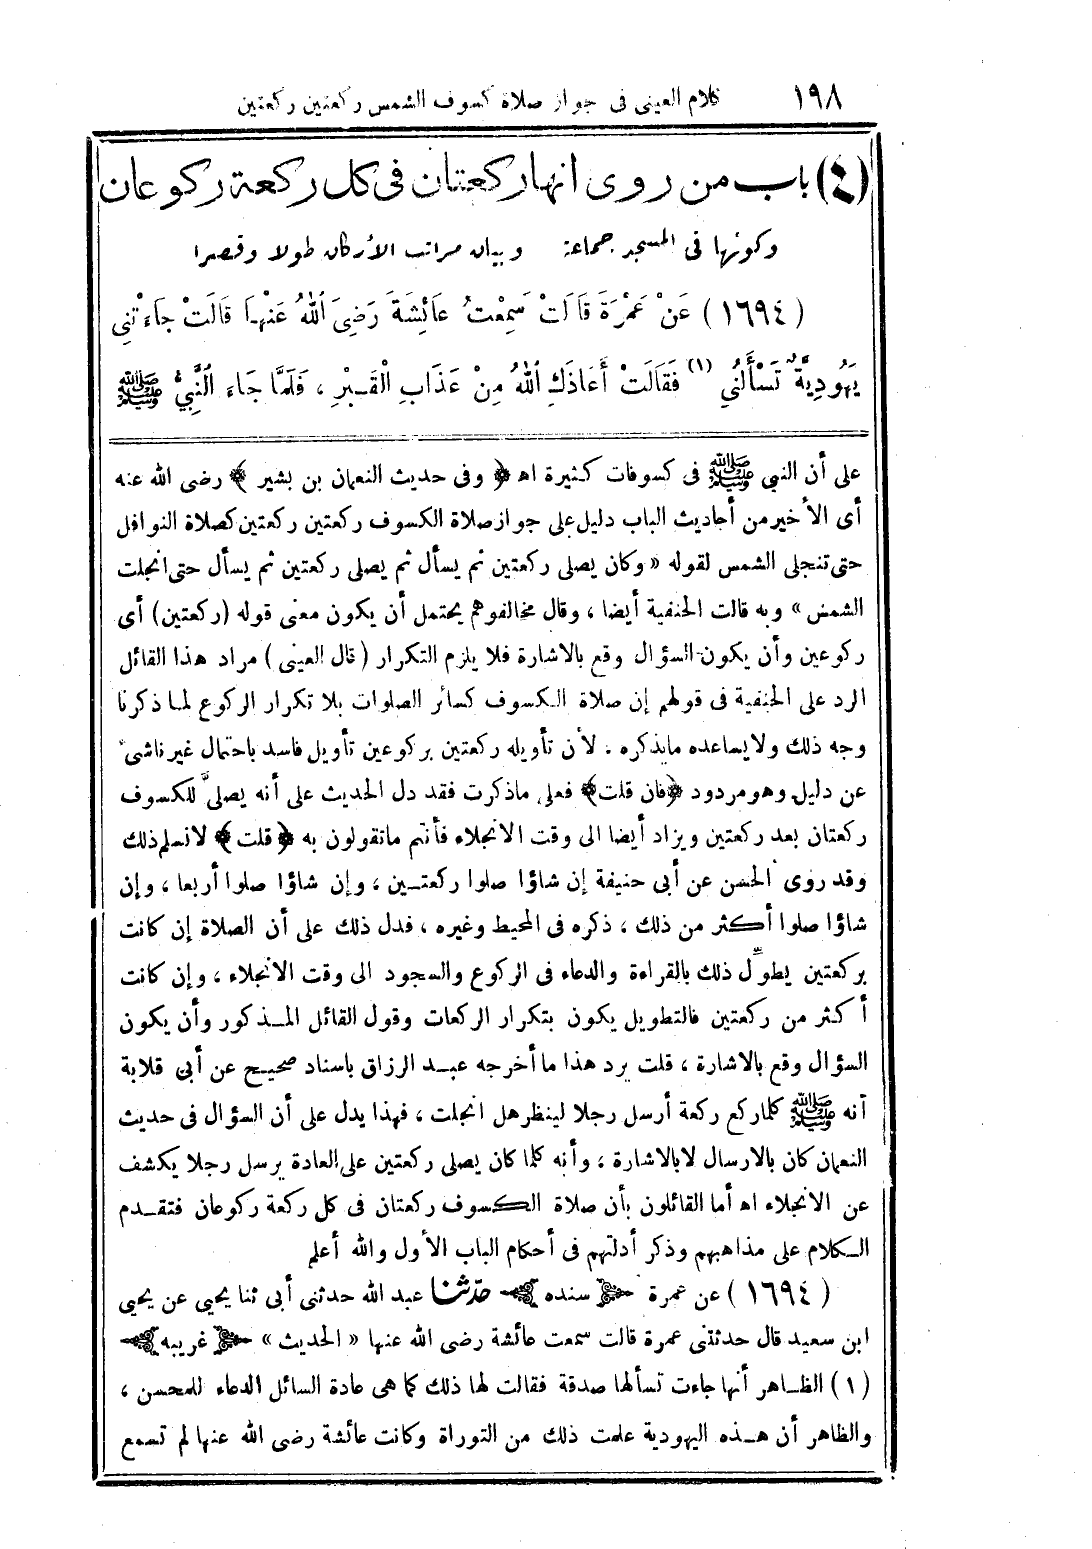 ١٩٨ كلام العينى فى جواز صلاة كسوف الشمس ركعتين ركعتين
(٤) باب من روى انها ركعتان فى كل ركعة ركوعان
وكونها فى المسجد جماعة وبيان مراتب الأركان طولا وقصرا
(١٦٩٤) عَنْ عَمْرَةَ قَالَتْ سَمِعْتُ عَائِشَةَ رَضِىَ اللهُ عَنْهَا قَالَتْ جَاءَتْنِى
يَهُودِيَّةٌ تَسْأَلُنِي (١) فَقَالَتْ أَعَاذَكِ اللهُ مِنْ عَذَابِ الْقَبْرِ ، فَلَمَّا جَاءَ النَّبِيُّ ﷺ
على أن النبي ﷺ فى كسوفات كثيرة اه ﴿ وفى حديث النعمان بن بشير ﴾ رضى الله عنه
أى الأخير من أحاديث الباب دليل على جواز صلاة الكسوف ركعتين ركعتين كصلاة النوافل
حتى تنجلى الشمس لقوله « وكان يصلى ركعتين ثم يسأل ثم يصلى ركعتين ثم يسأل حتى انجلت
الشمس » وبه قالت الحنفية أيضا ، وقال مخالفوهم يحتمل أن يكون معنى قوله (ركعتين) أى
ركوعين وأن يكون السؤال وقع بالاشارة فلا يلزم التكرار (قال العينى) مراد هذا القائل
الرد على الحنفية فى قولهم إن صلاة الكسوف كسائر الصلوات بلا تكرار الركوع لما ذكرنا
وجه ذلك ولا يساعده ما يذكره . لأن تأويله ركعتين بركوعين تأويل فاسد باحتمال غير ناشىء
عن دليل وهو مردود ﴿فان قلت﴾ فعلى ما ذكرت فقد دل الحديث على أنه يصلى للكسوف
ركعتان بعد ركعتين ويزاد أيضا الى وقت الانجلاء فأنتم ما تقولون به ﴿ قلت ﴾ لا نسلم ذلك
وقد روى الحسن عن أبى حنيفة إن شاؤا صلوا ركعتين ، وإن شاؤا صلوا أربعا ، وإن
شاؤا صلوا أكثر من ذلك ، ذكره فى المحيط وغيره ، فدل ذلك على أن الصلاة إن كانت
بركعتين يطوّل ذلك بالقراءة والدعاء فى الركوع والسجود الى وقت الانجلاء ، وإن كانت
أكثر من ركعتين فالتطويل يكون بتكرار الركعات وقول القائل المذكور وأن يكون
السؤال وقع بالاشارة ، قلت يرد هذا ما أخرجه عبد الرزاق باسناد صحيح عن أبى قلابة
أنه ﷺ كلما ركع ركعة أرسل رجلا لينظر هل انجلت ، فهذا يدل على أن السؤال فى حديث
النعمان كان بالارسال لا بالاشارة ، وأنه كلما كان يصلى ركعتين على العادة يرسل رجلا يكشف
عن الانجلاء اه أما القائلون بأن صلاة الكسوف ركعتان فى كل ركعة ركوعان فتقدم
الكلام على مذاهبهم وذكر أدلتهم فى أحكام الباب الأول والله أعلم
(١٦٩٤) عن عمرة سنده حدّثنا عبد الله حدثنى أبى ثنا يحيى عن يحيى
ابن سعيد قال حدثتنى عمرة قالت سمعت عائشة رضى الله عنها « الحديث » غريبه
(١) الظاهر أنها جاءت تسألها صدقة فقالت لها ذلك كما هى عادة السائل الدعاء للمحسن ،
والظاهر أن هذه اليهودية علمت ذلك من التوراة وكانت عائشة رضى الله عنها لم تسمع